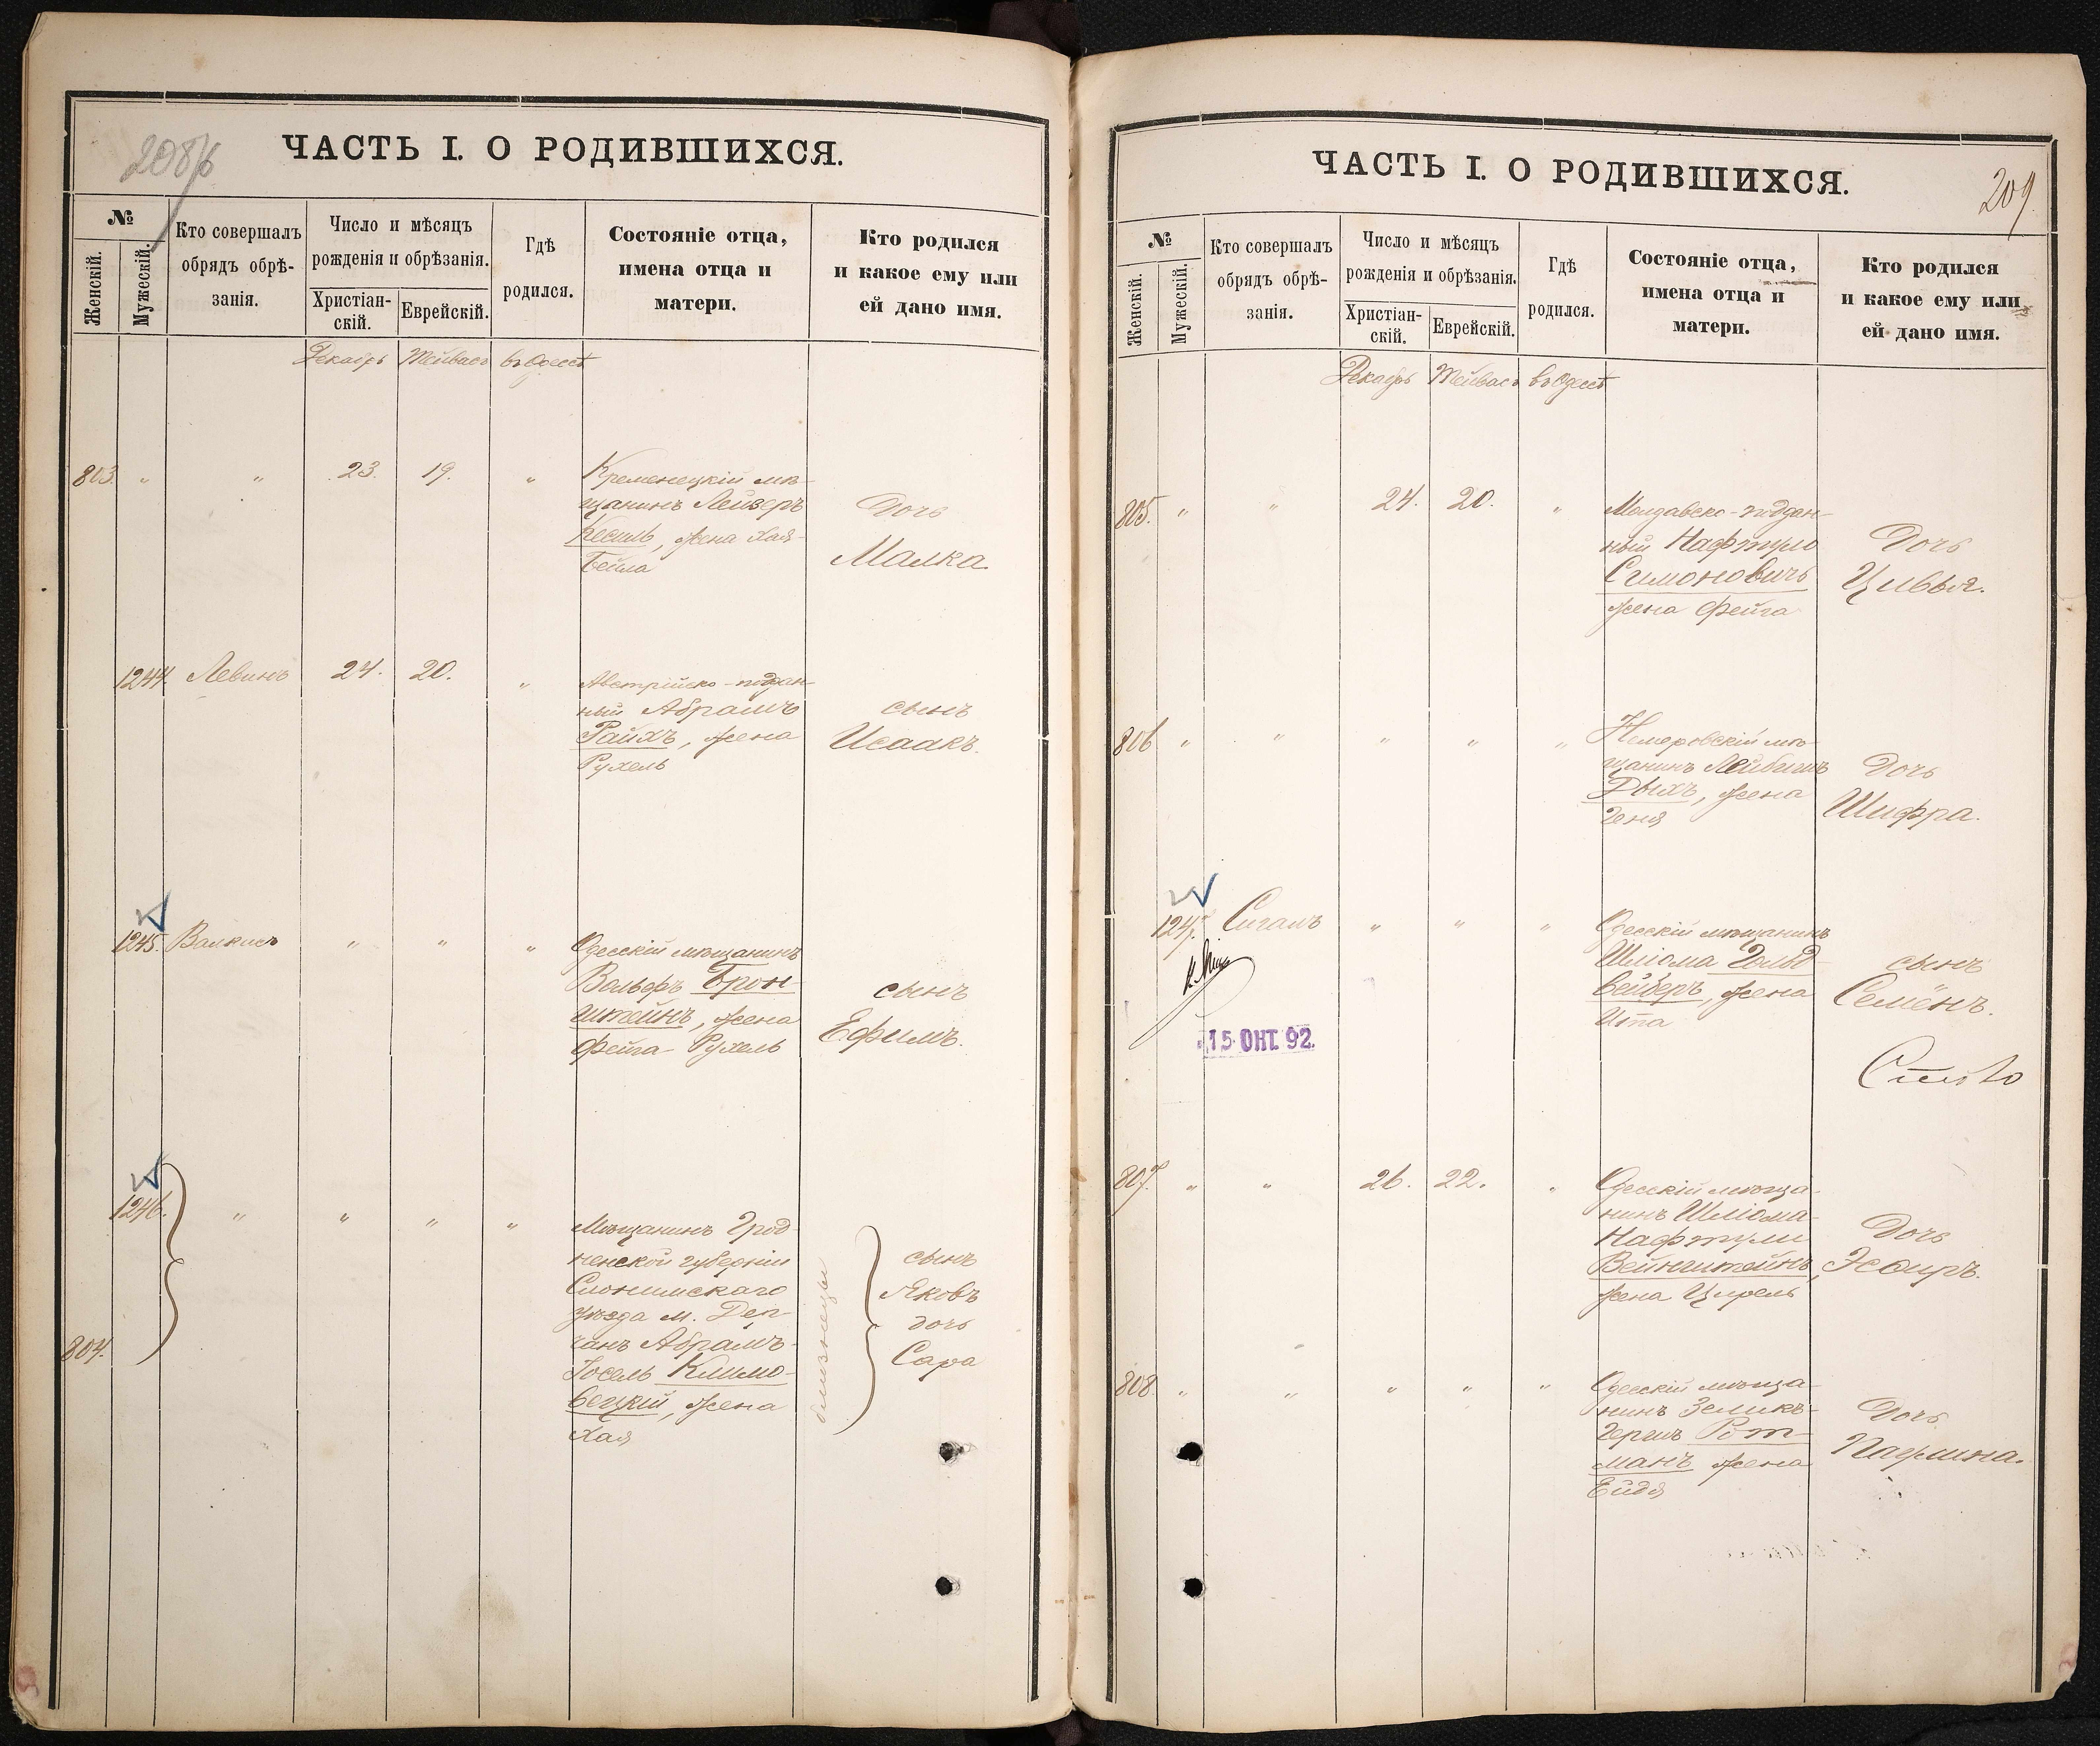 ЧАСТЬ I. О РОДИВШИХСЯ.
№
Женскій.
Мужескій.
Кто совершалъ
обрядъ обрѣ-
занія.
Число и мѣсяцъ
рожденія и обрѣзанія.
Христіан-
скій.
Еврейскій.
Гдѣ
родился.
Состояніе отца,
имена отца и
матери.
Кто родился
и какое ему или
ей дано имя.
Декабрь Тейвасъ въ Одессѣ
803. " " 23. 19. "
Кременецкій мѣ-
щанинъ Лейзеръ
Кесиль, жена Хая-
Бейла
Дочь
Малка.
1244. Левинъ 24. 20. "
Австрійско-поддан-
ный Абрамъ
Райхъ, жена
Рухель
сынъ
Исаакъ.
1245. Валкисъ " " "
Одесскій мѣщанинъ
Вольфъ Брон-
штейнъ, жена
Фейга-Рухель
сынъ
Ефимъ.
1246. " " " "
804.
Мѣщанинъ Грод-
ненской губерніи
Слонимскаго
уѣзда м. Дер-
чинъ Абрамъ-
Іосель Климо-
вецкій, жена
Хая
близнецы
сынъ
Яковъ
дочь
Сара
ЧАСТЬ I. О РОДИВШИХСЯ.
209
№
Женскій.
Мужескій.
Кто совершалъ
обрядъ обрѣ-
занія.
Число и мѣсяцъ
рожденія и обрѣзанія.
Христіан-
скій.
Еврейскій.
Гдѣ
родился.
Состояніе отца,
имена отца и
матери.
Кто родился
и какое ему или
ей дано имя.
Декабрь Тейвасъ въ Одессѣ
805. " " 24. 20. "
Молдавско-поддан-
ный Нафтуло
Симоновичъ
жена Фейга
Дочь
Цивья.
806 " " " " "
Немеровскій мѣ-
щанинъ Лейбишъ
Дыхъ, жена
Геня
Дочь
Шифра.
1247. Сигалъ " " "
Одесскій мѣщанинъ
Шліома Гольд-
вейберъ, жена
Ита
сынъ
Семёнъ.
15 ОКТ. 92.
807. " " 26. 22. "
Одесскій мѣща-
нинъ Шліома-
Нафтули
Вейнштейнъ,
жена Цирель
Дочь
Эсѳирь.
808. " " " " "
Одесскій мѣща-
нинъ Зеликъ-
Гершъ Рот-
манъ жена
Ейдя
Дочь